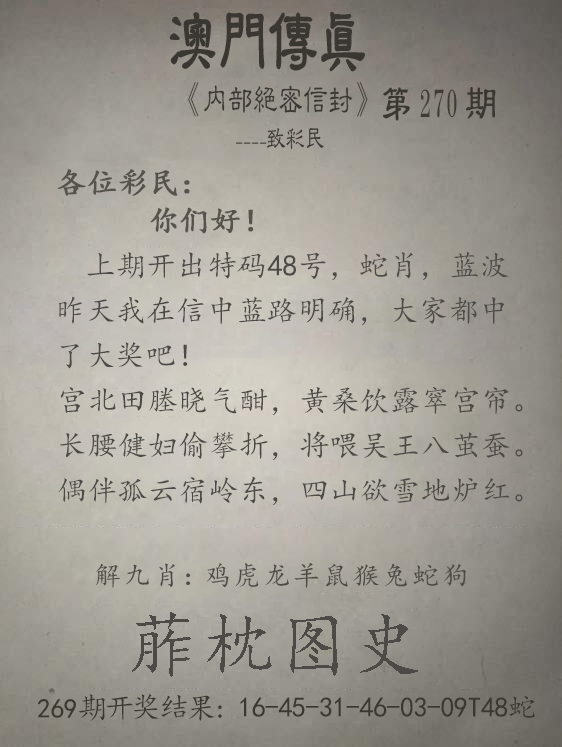 澳門傳眞
《内部絕密信封》第270期
----致彩民
各位彩民：
你们好！
上期开出特码48号，蛇肖，蓝波
昨天我在信中蓝路明确，大家都中
了大奖吧！
宫北田塍晓气酣，黄桑饮露窣宫帘。
长腰健妇偷攀折，将喂吴王八茧蚕。
偶伴孤云宿岭东，四山欲雪地炉红。
解九肖：鸡虎龙羊鼠猴兔蛇狗
葄枕图史
269期开奖结果：16-45-31-46-03-09T48蛇